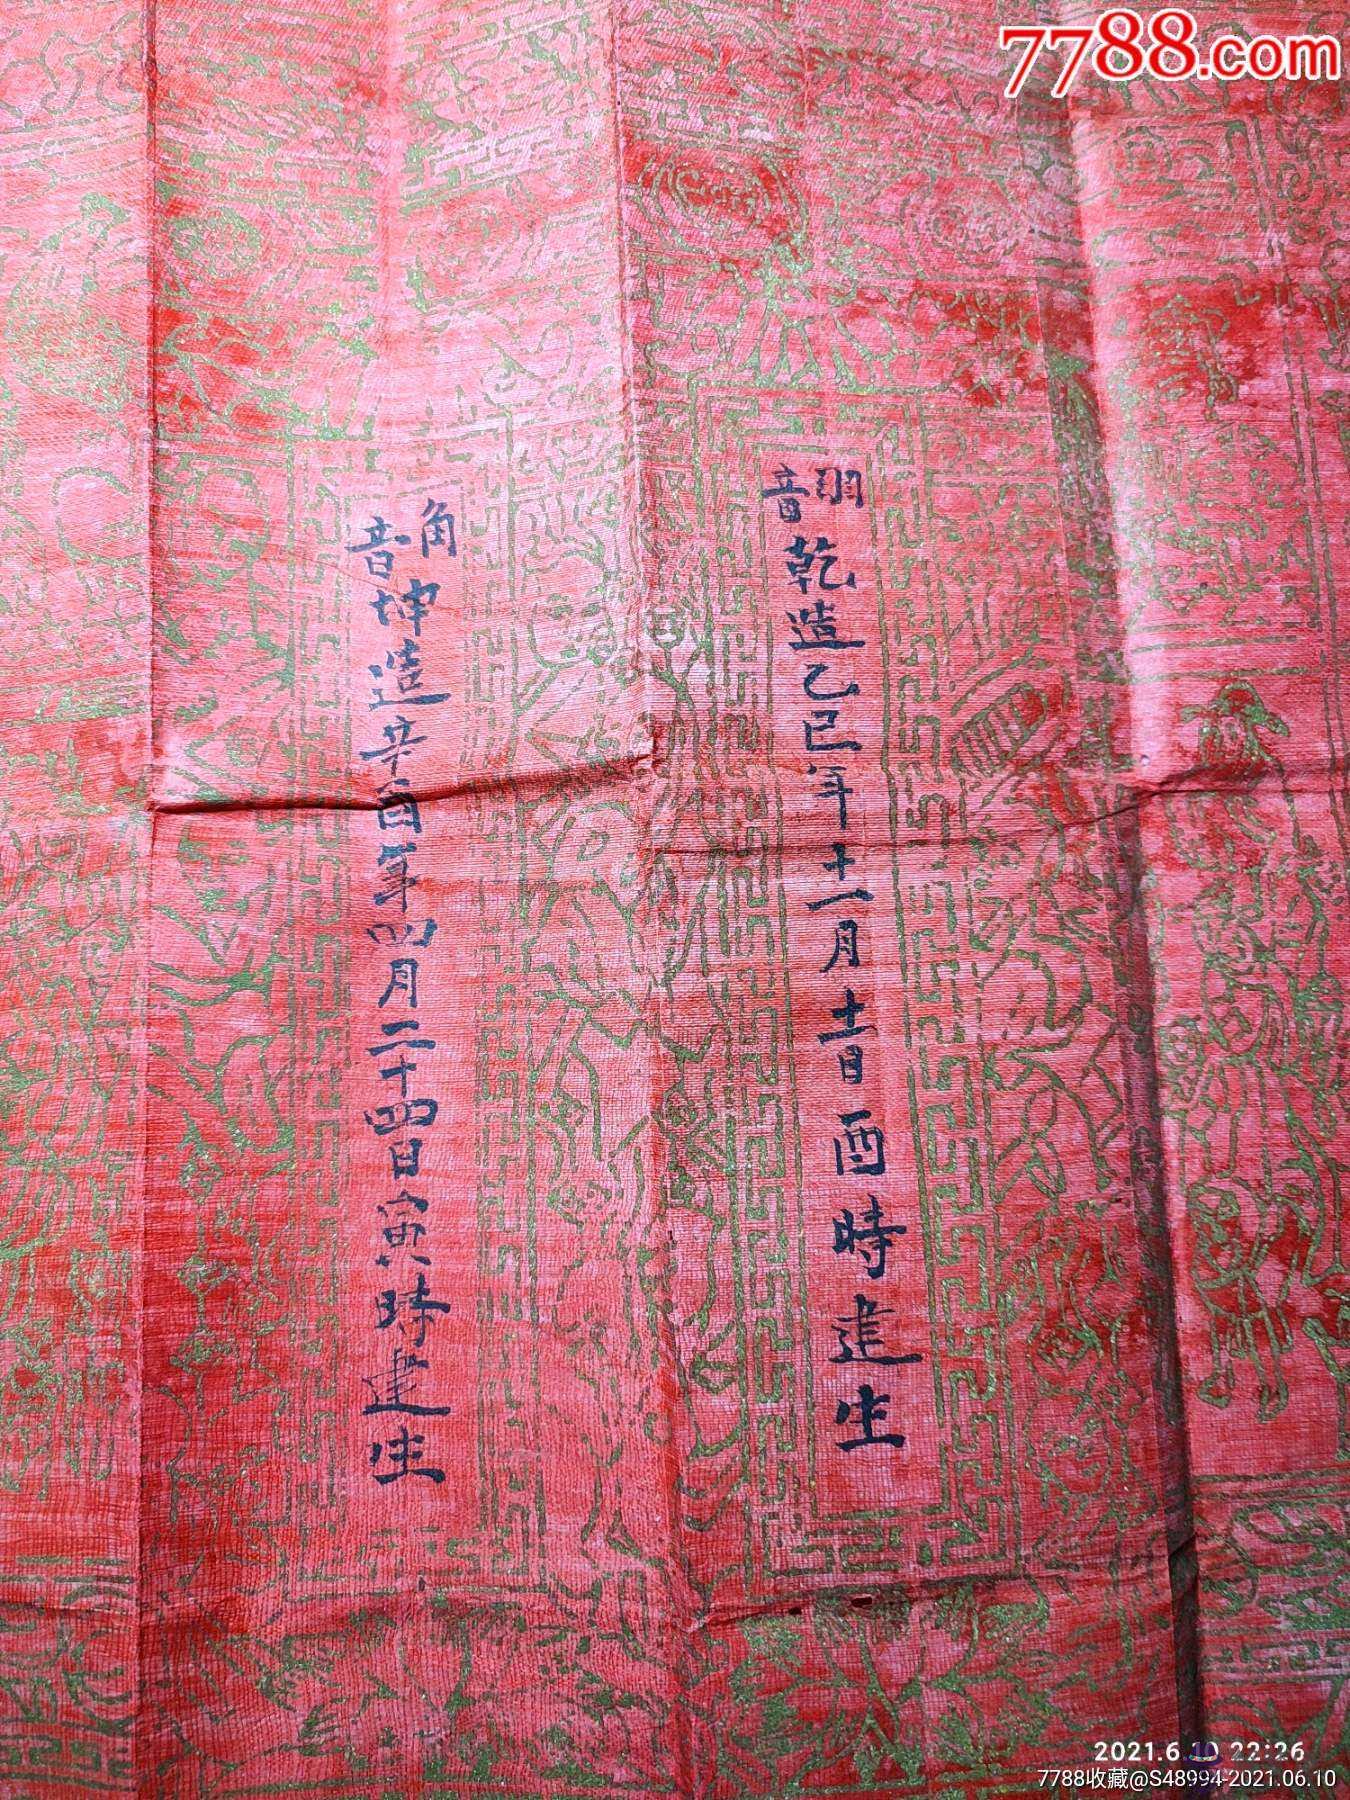 7788.com
羽音乾造乙巳年十一月十一日酉時建生
角音坤造辛酉年四月二十四日寅時建生
2021.6.10 22:26
7788收藏@S48994-2021.06.10